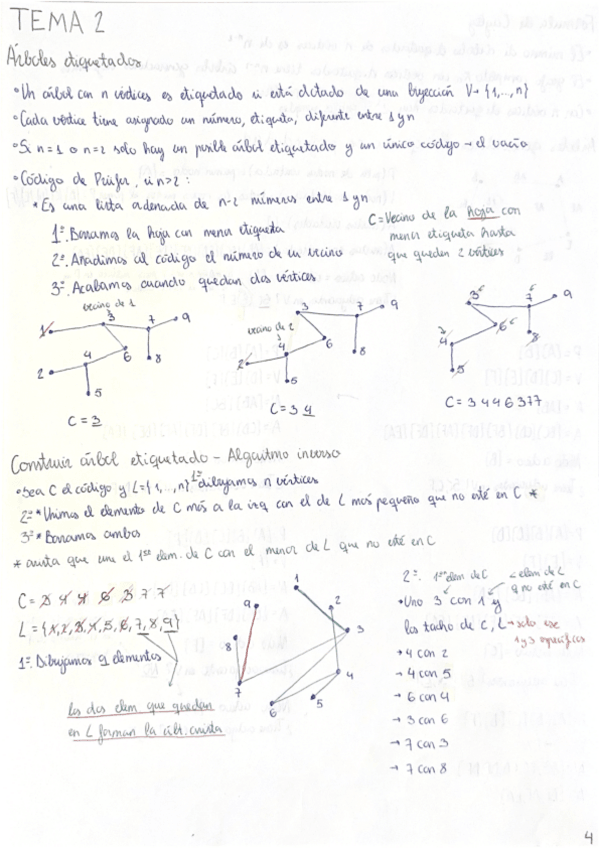 TEMA 2
Árboles etiquetados
•Un árbol con n vértices es etiquetado si está dotado de una biyección V→{1,...,n}
•Cada vértice tiene asignado un número, etiqueta, diferente entre 1 y n
•Si n=1 o n=2 solo hay un posible árbol etiquetado y un único código → el vacío
•Código de Prüfer, si n>2:
*Es una lista ordenada de n-2 números entre 1 y n
1º. Borramos la hoja con menor etiqueta
2º. Añadimos al código el número de su vecino
3º. Acabamos cuando quedan dos vértices
C=Vecino de la hoja con
menor etiqueta hasta
que queden 2 vértices
vecino de 1
1 3 7 9
2 4 6 8
5
C=3
vecino de 2
3 7 9
2 4 6 8
5
C=34
3 7 9
4 6
5
C=3446377
Construir árbol etiquetado - Algoritmo inverso
•Sea C el código y L={1,...,n} 1º dibujamos n vértices
2º *Unimos el elemento de C más a la izq con el de L más pequeño que no esté en C *
3º *Borramos ambos
* arista que une el 1er elem. de C con el menor de L que no esté en C
C=3 4 4 6 3 7 7
L={1,2,3,4,5,6,7,8,9}
1º. Dibujamos 9 elementos
los dos elem que quedan
en L forman la últ. arista
1
2
3
4
5
6
7
8
9
2º. 1er elem de C
< elem de L
q no esté en C
•Uno 3 con 1 y
los tacho de C, L → solo ese
1 y 3 específicos
→ 4 con 2
→ 4 con 5
→ 6 con 4
→ 3 con 6
→ 7 con 3
→ 7 con 8
4